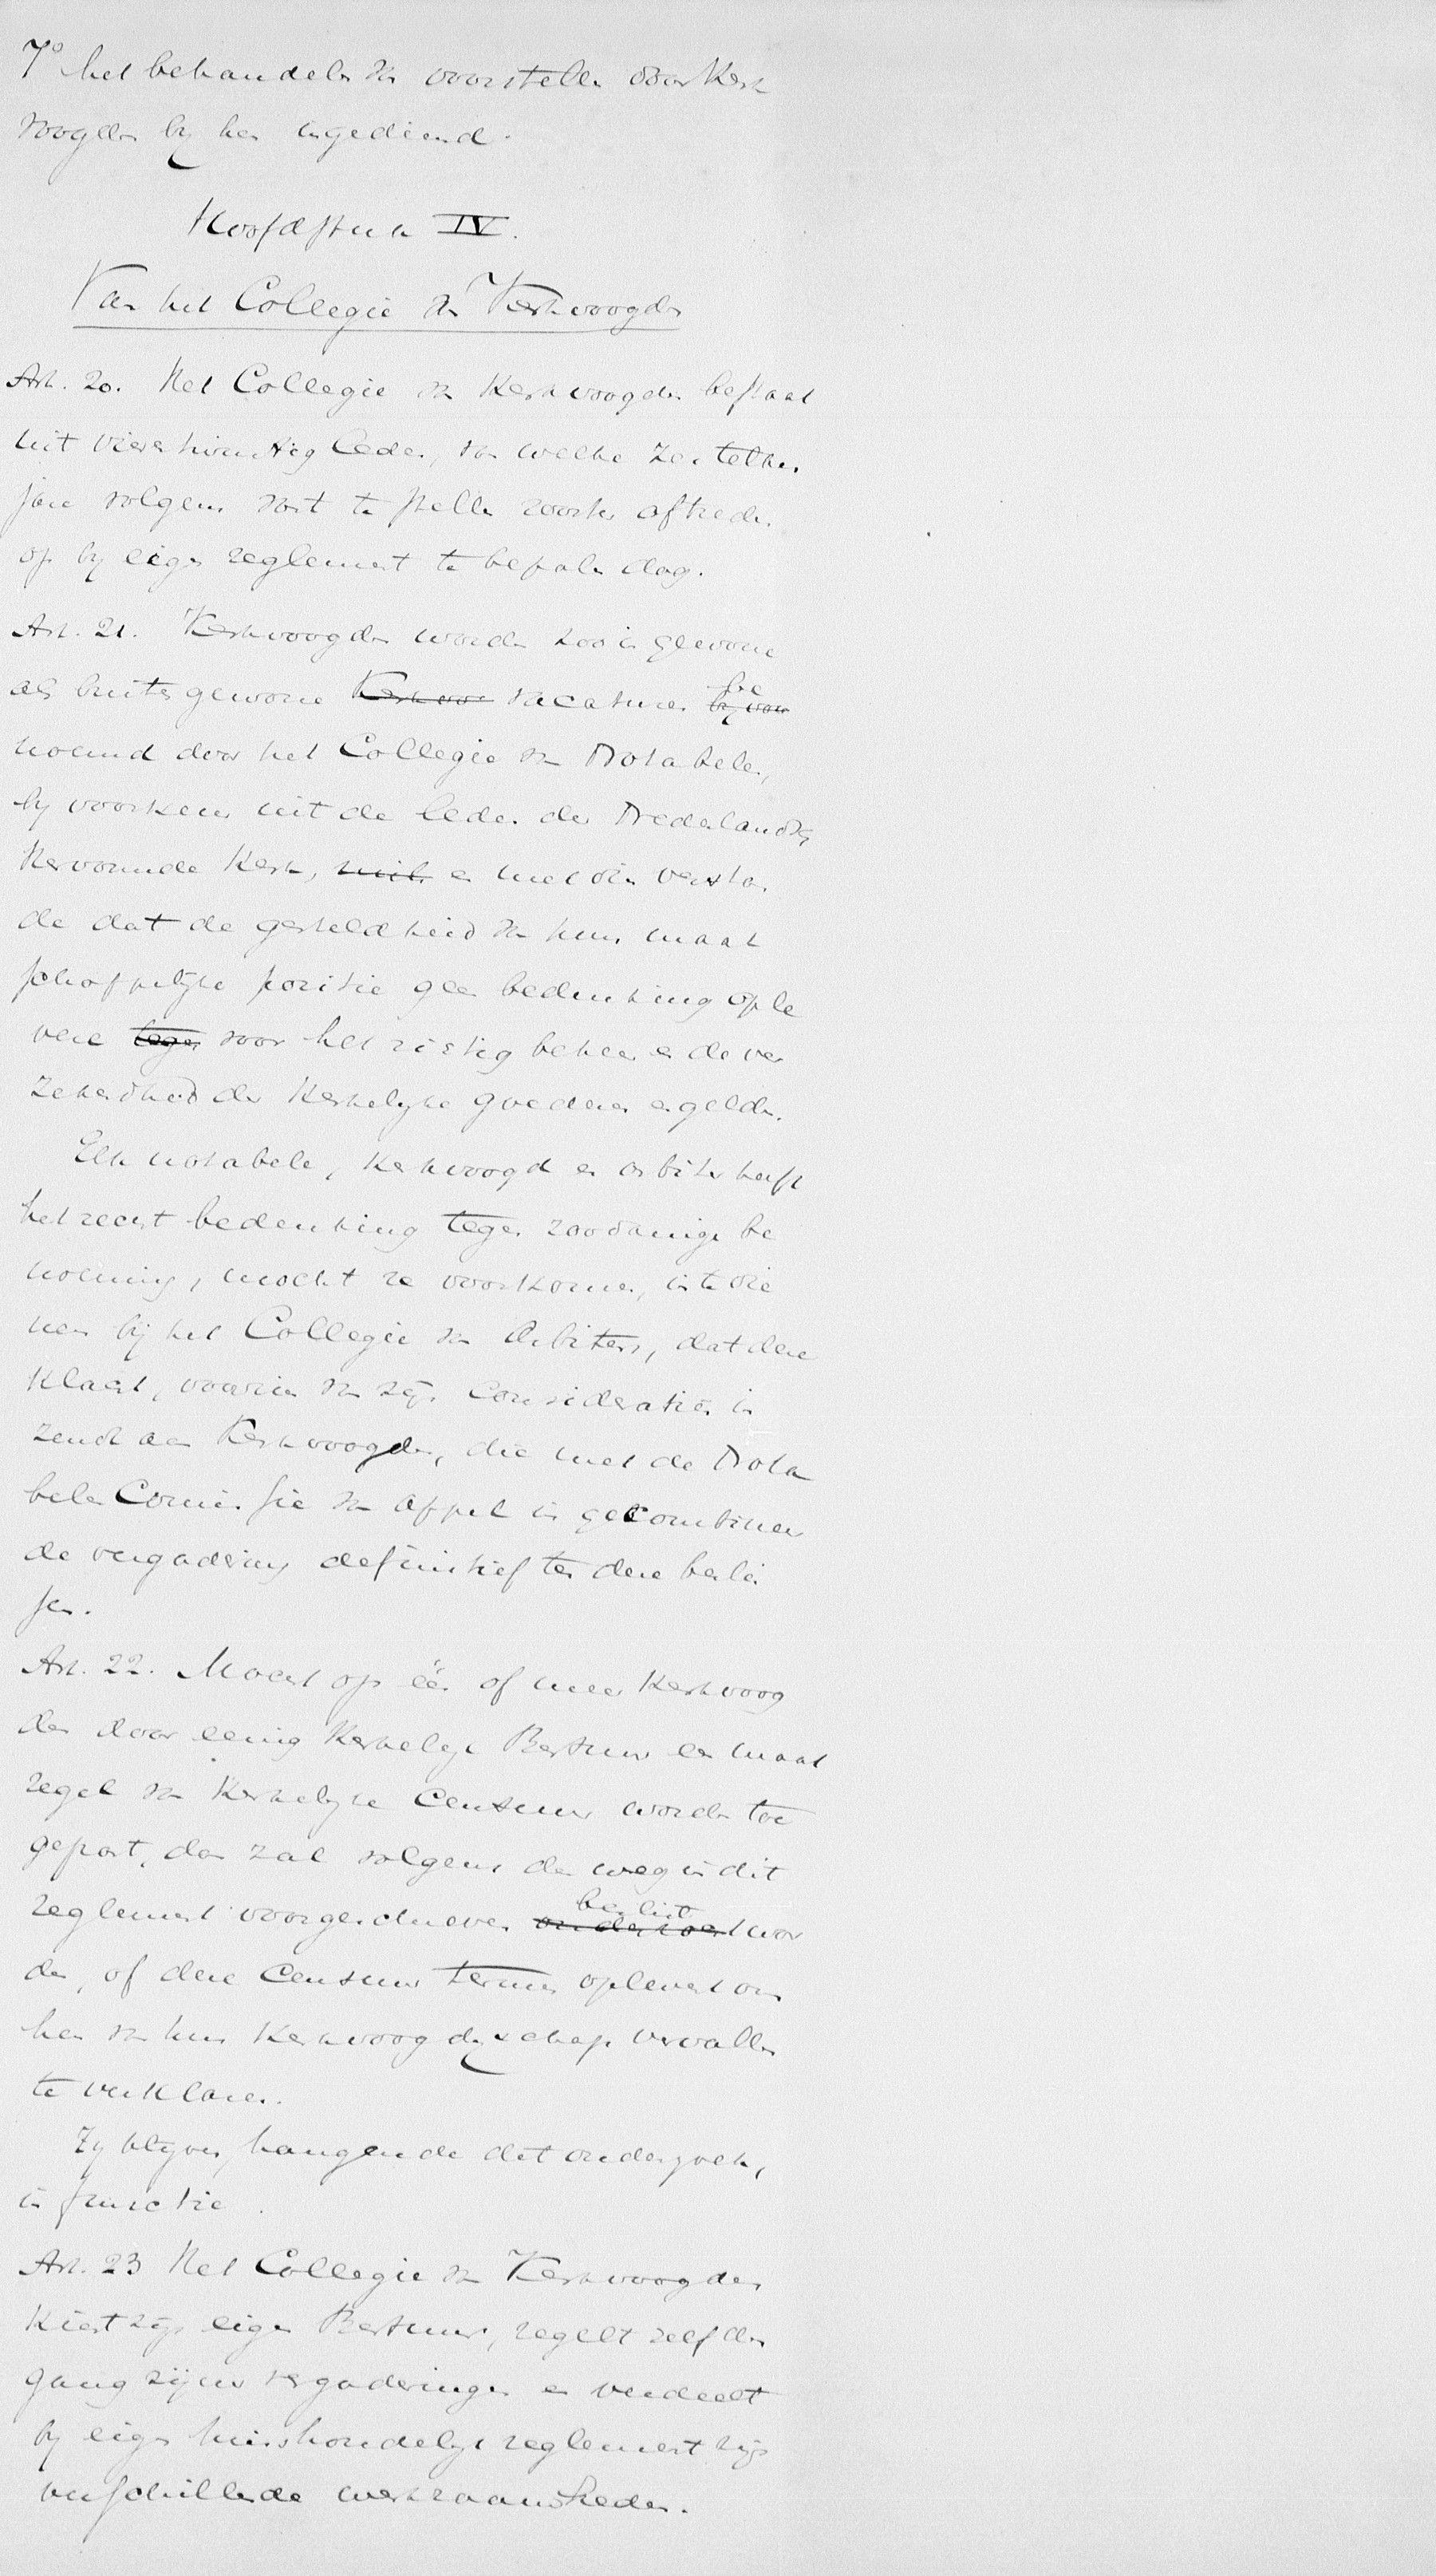 7º het behandelen van voorstellen door Kerk
voogden bij hen ingediend.
Hoofdstuk IV.
Van het Collegie van Kerkvoogden
Art. 20. Het Collegie van Kerkvoogden bestaat
uit vierentwintig leden, van welke zes telken
jare volgens vast te stellen rooster aftreden
op bij eigen reglement te bepalen dag.
Art. 21. Kerkvoogden worden zoo in gewone
als buitengewone Kerkvoo vacatures be
noemd door het Collegie van Notabelen,
bij voorkeur uit de leden der Nederlandsch
Hervormde Kerk, en met dien verstan
de dat de gesteldheid van hun maat
schappelijke positie geen bedenking ople
vere tegen voor het rustig beheer en de ver
zekerdheid der Kerkelijke goederen en gelden.
Elk notabele, kerkvoogd en arbiter heeft
het recht bedenking tegen zoodanige be
noeming, mocht ze voorkomen, in te die
nen bij het Collegie van Arbiters, dat deze
klacht, voorzien van zijn consideratiën in
zendt aan Kerkvoogden, die met de Nota
belen Commissie van appel in gecombineer
de vergadering definitief ten deze beslis
sen.
Art. 22. Mocht op één of meer Kerkvoog
den door eenig Kerkelijk Bestuur een maat
regel van Kerkelijke Censuur worden toe
gepast, dan zal volgens den weg in dit
reglement voorgeschreven onderzocht beslist wor
den, of deze Censuur termen oplevert om
hen van hun Kerkvoogdijschap vervallen
te verklaren.
Zij blijven, hangende dit onderzoek,
in functie.
Art. 23 Het Collegie van Kerkvoogden
kiest zijn eigen Bestuur, regelt zelf den
gang zijner vergaderingen en verdeelt
bij eigen huishoudelijk reglement zijn
verschillende werkzaamheden.